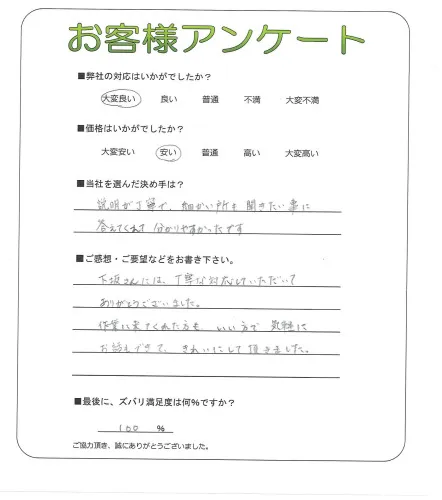 お客様アンケート
■弊社の対応はいかがでしたか？
大変良い 良い 普通 不満 大変不満
■価格はいかがでしたか？
大変安い 安い 普通 高い 大変高い
■当社を選んだ決め手は？
説明が丁寧で、細かい所も聞きたい事に
答えてくれて分かりやすかったです
■ご感想・ご要望などをお書き下さい。
下坂さんには、丁寧な対応していただいて
ありがとうございました。
作業に来てくれた方も、いい方で気軽に
お話もできて、きれいにして頂きました。
■最後に、ズバリ満足度は何%ですか？
100 %
ご協力頂き、誠にありがとうございました。